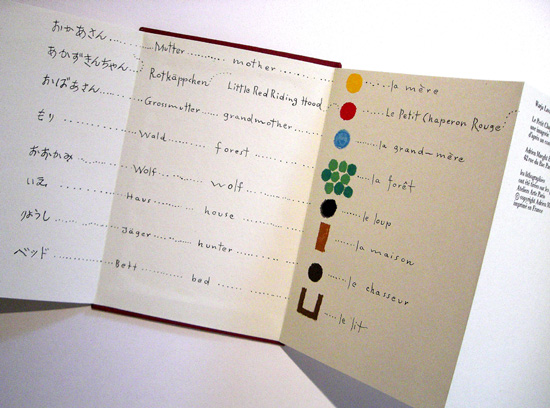 おかあさん Mutter mother la mère
あかずきんちゃん Rotkäppchen Little Red Riding Hood Le Petit Chaperon Rouge
おばあさん Grossmutter grandmother la grand-mère
もり Wald forest la forêt
おおかみ Wolf wolf le loup
いえ Haus house la maison
りょうし Jäger hunter le chasseur
ベッド Bett bed le lit
Le Petit
une imagerie
d'après un
Adrien Maeght
42 rue du Bac
les lithographies
ont été
Ateliers Arte Paris
© copyright Adrien
imprimé en France